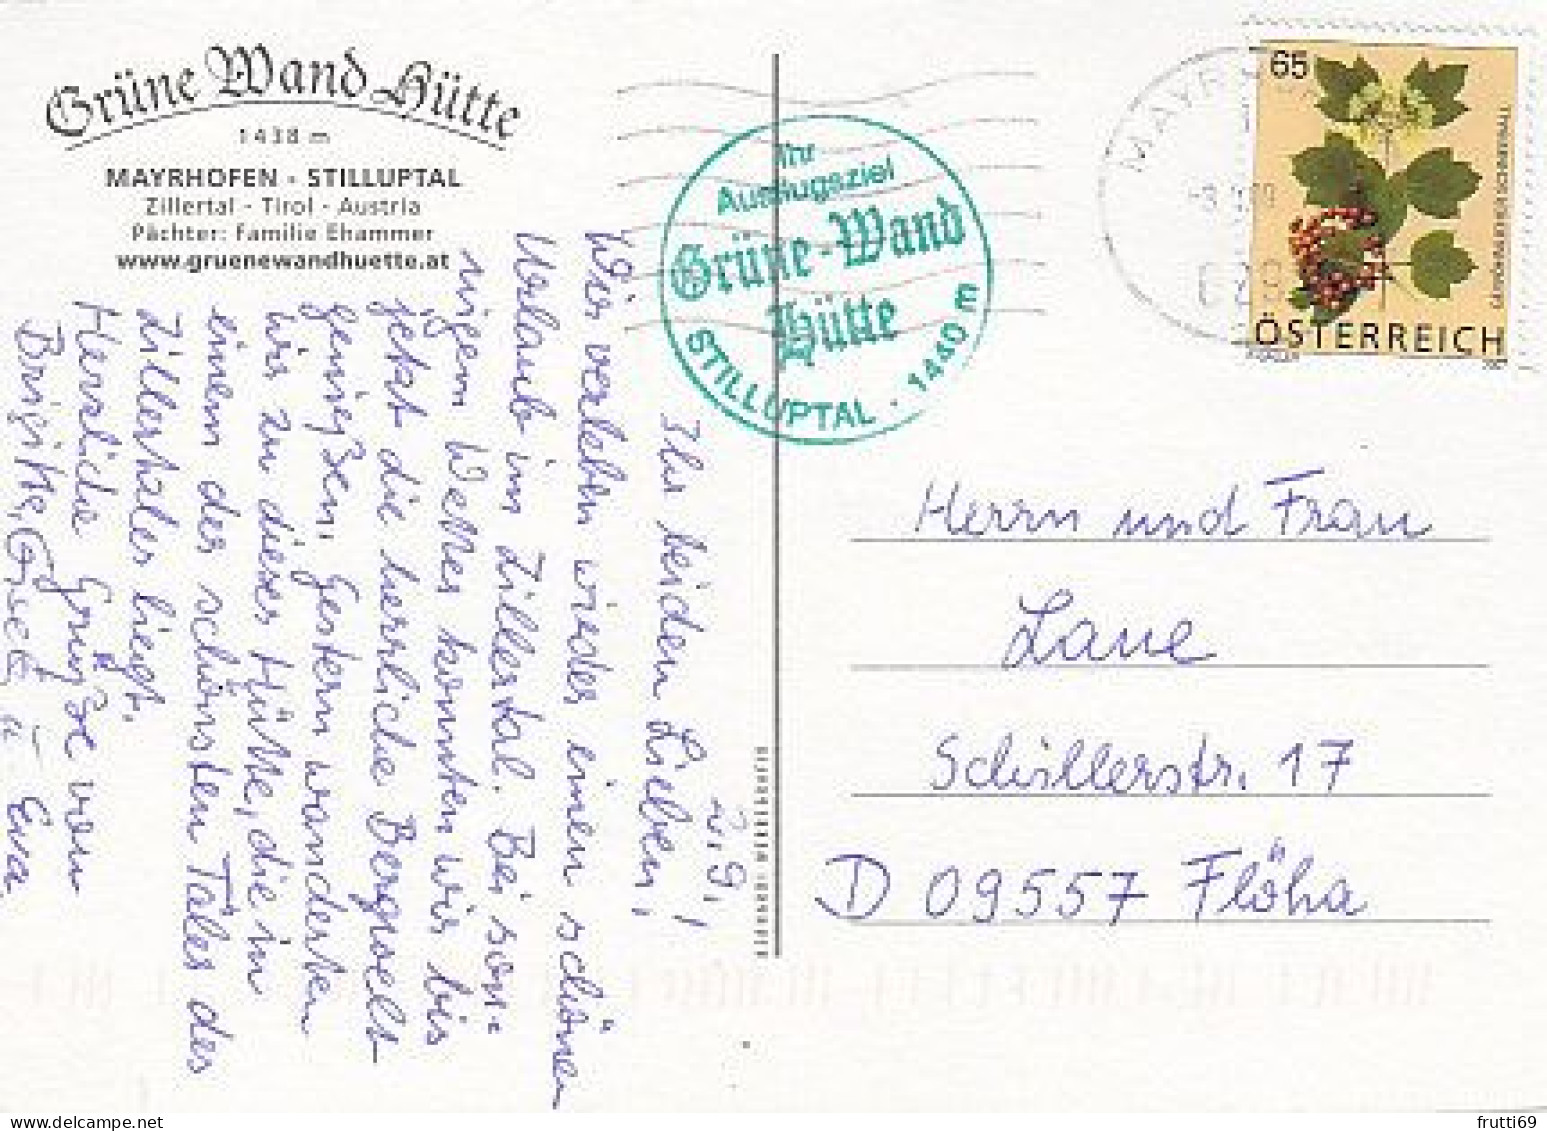 Grüne Wand Hütte
1438 m
MAYRHOFEN - STILLUPTAL
Zillertal - Tirol - Austria
Pächter: Familie Ehammer
www.gruenewandhuette.at
Ihr
Ausflugsziel
Grüne-Wand
Hütte
STILLUPTAL · 1440 m
65
ÖSTERREICH
2.9.
Ihr beiden Lieben,
Wir verleben wieder einen schönen
Urlaub im Zillertal. Bei son-
nigem Wetter konnten wir bis
jetzt die herrliche Bergwelt
genießen. Gestern wanderten
wir zu dieser Hütte, die in
einem der schönsten Täler des
Zillertales liegt.
Herzliche Grüße von
Brigitte, u. Eva
Herrn und Frau
Schillerstr. 17
D 09557 Flöha
frutti69